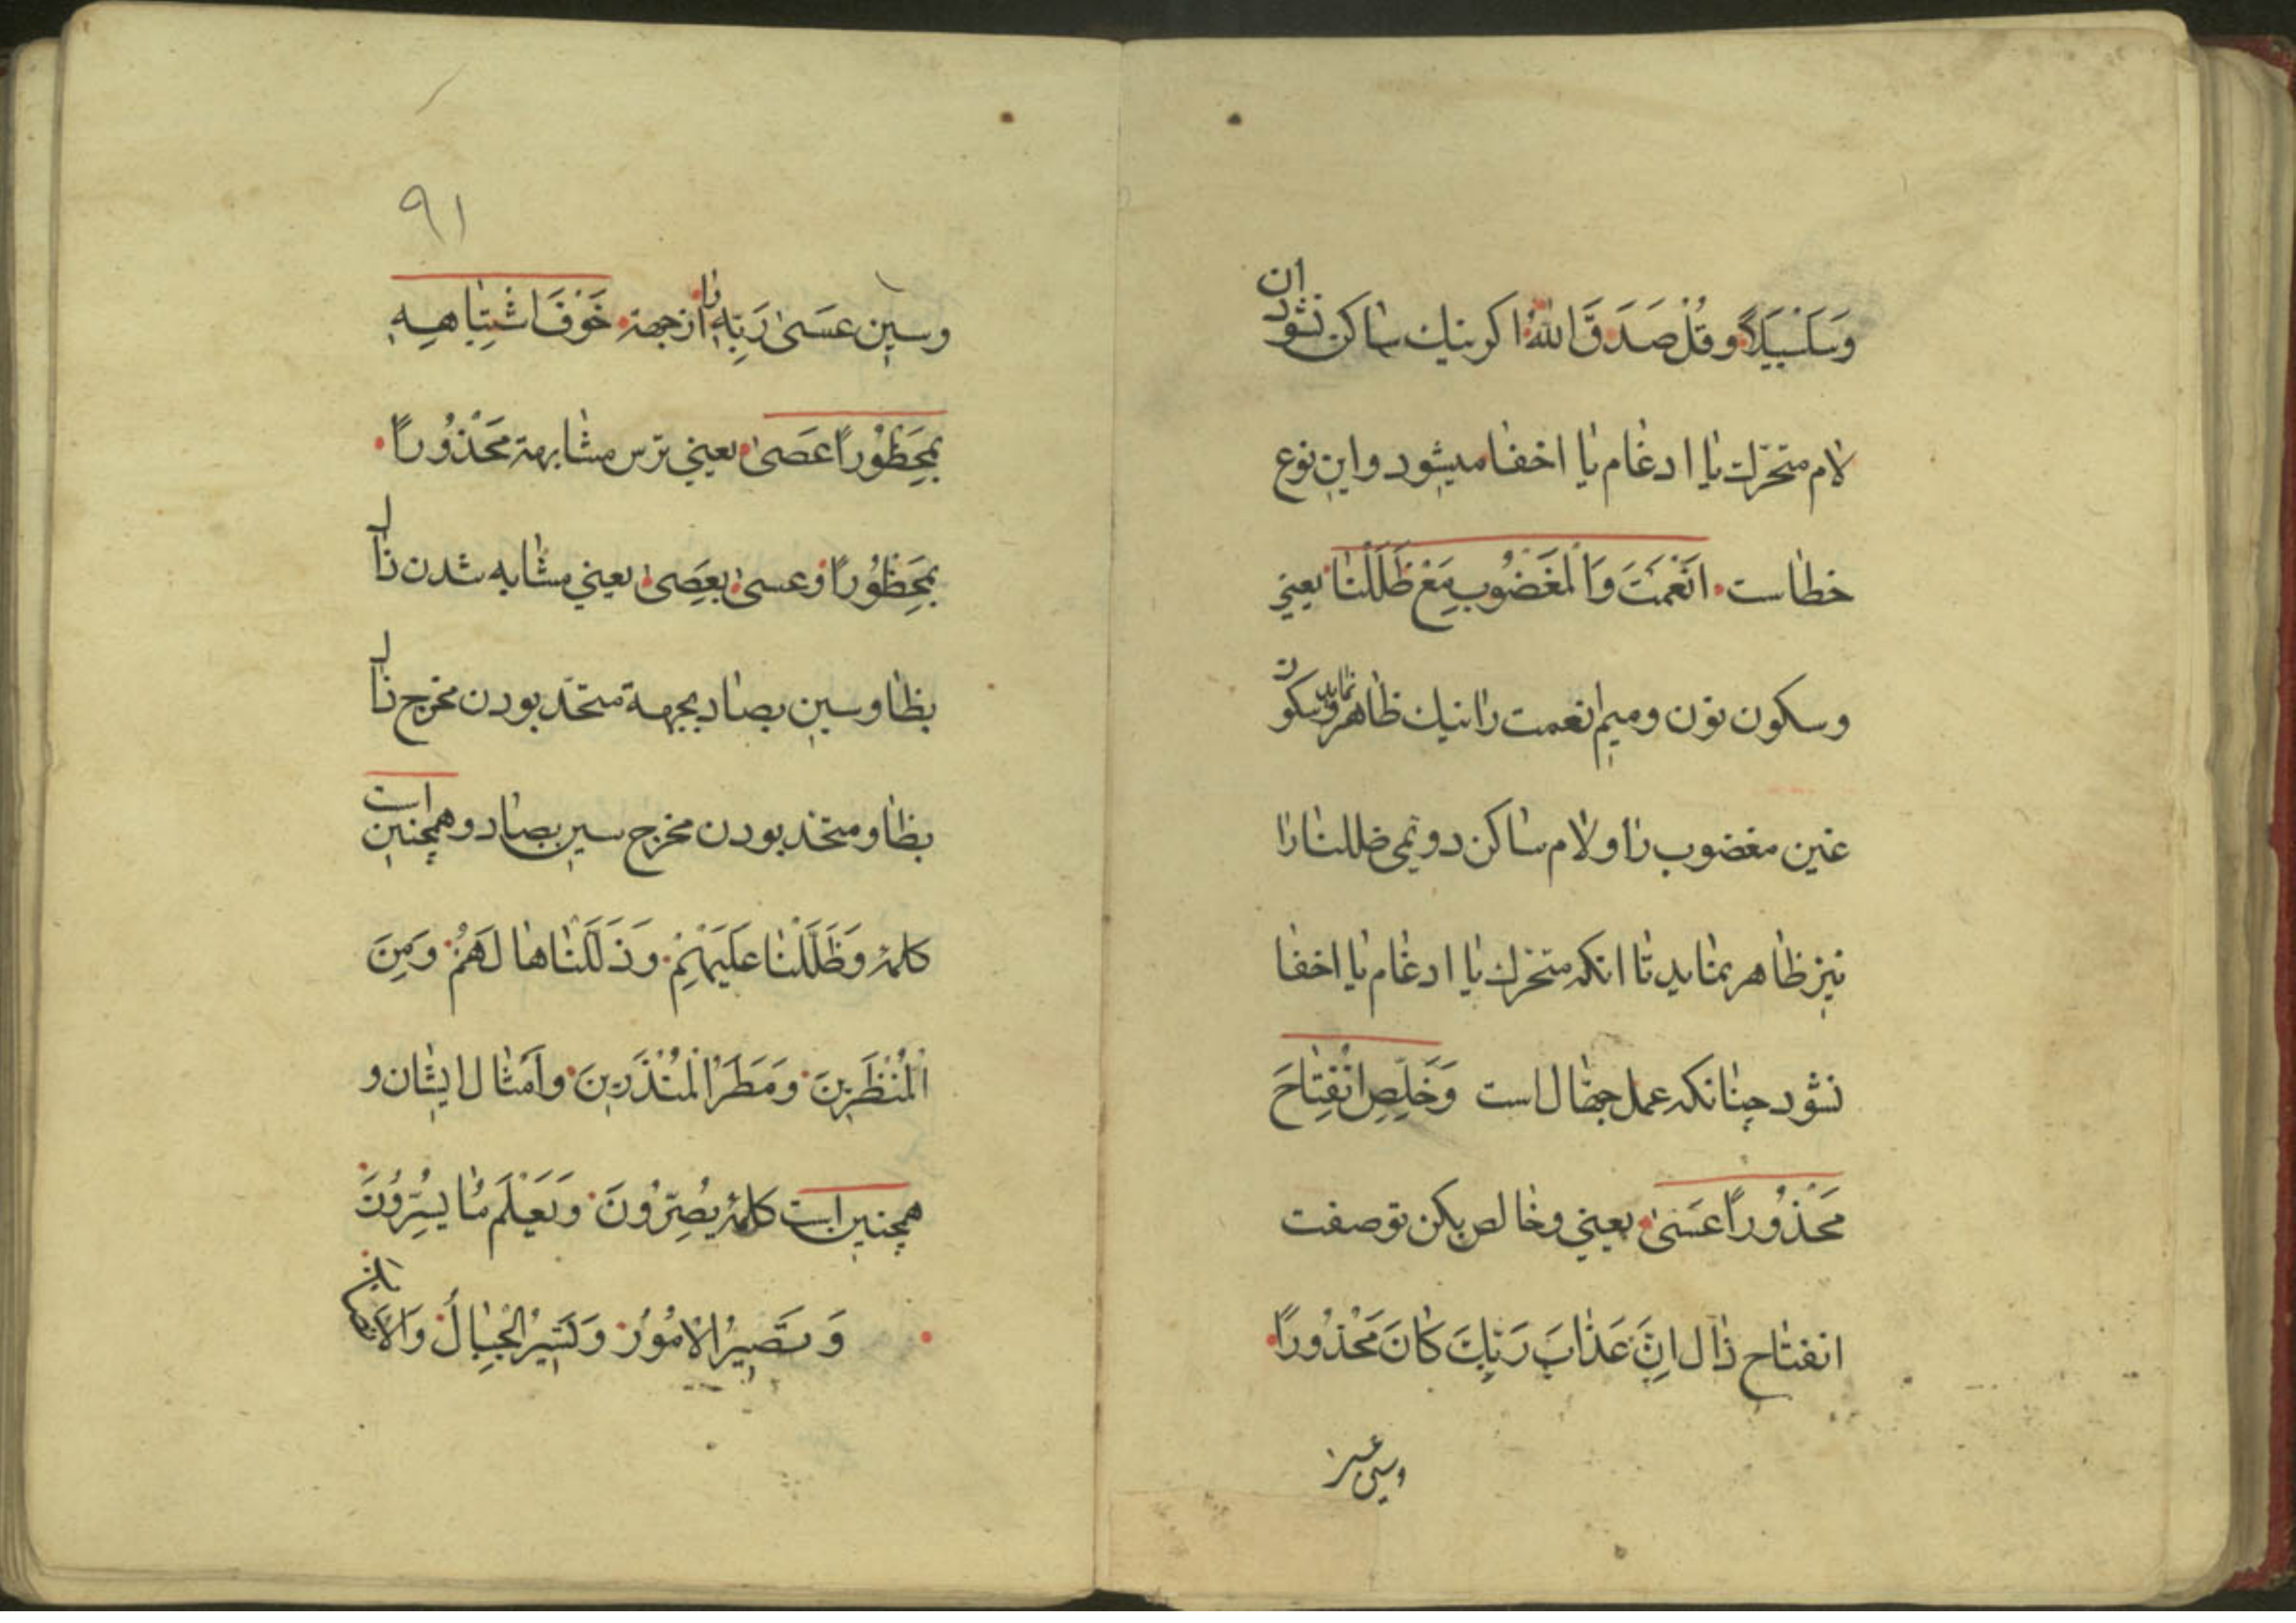 وَسَلْسَبِيلًا وقُلْ صَدَقَ اللهُ اکر نیك ساکن نشود ان
لام متحرك یا ادغام یا اخفا میشود واین نوع
خطاست اَنْعَمْتَ وَالْمَغْضُوبِ مَعْ ظَلَلْنَا یعنی
وسکون نون ومیم انعمت را نیك ظاهر نماید وسکون
غین مغضوب را ولام ساکن دویمی ضللنا را
نیز ظاهر نماید تا انکه متحرك یا ادغام یا اخفا
نشود چنانکه عمل جهّال است وَخَلِّصِ انْفِتَاحَ
مَحْذُورًا عَسَیٰ یعنی وخالص بکن تو صفت
انفتاح ذال اِنَّ عَذَابَ رَبِّكَ كَانَ مَحْذُورًا
وسین عَسَیٰ رَبِّهِ را ازجهة خَوْفَ اشْتِبَاهِهِ
بِمَحْظُورًا عَصَیٰ یعنی ترس مشابهة مَحْذُورًا
بِمَحْظُورًا وعسیٰ بعَصَیٰ یعنی مشابه شدن ذال
بظا وسین بصاد بجهة متحّد بودن مخرج ذال
بظا ومتحّد بودن مخرج سین بصاد وهمچنین است
كلمۀ وَظَلَّلْنَا عَلَيْهِمْ وَذَلَّلْنَاهَا لَهُمْ وَمِنَ
الْمُنْظَرِينَ وَمَطَرُ الْمُنْذَرِينَ واَمْثال ایشان و
همچنین است كلمۀ يُصِرُّونَ وَيَعْلَمُ مَا يُسِرُّونَ
وَتَصِيرُ الْامُورُ وَتَسِيرُ الْجِبَالُ